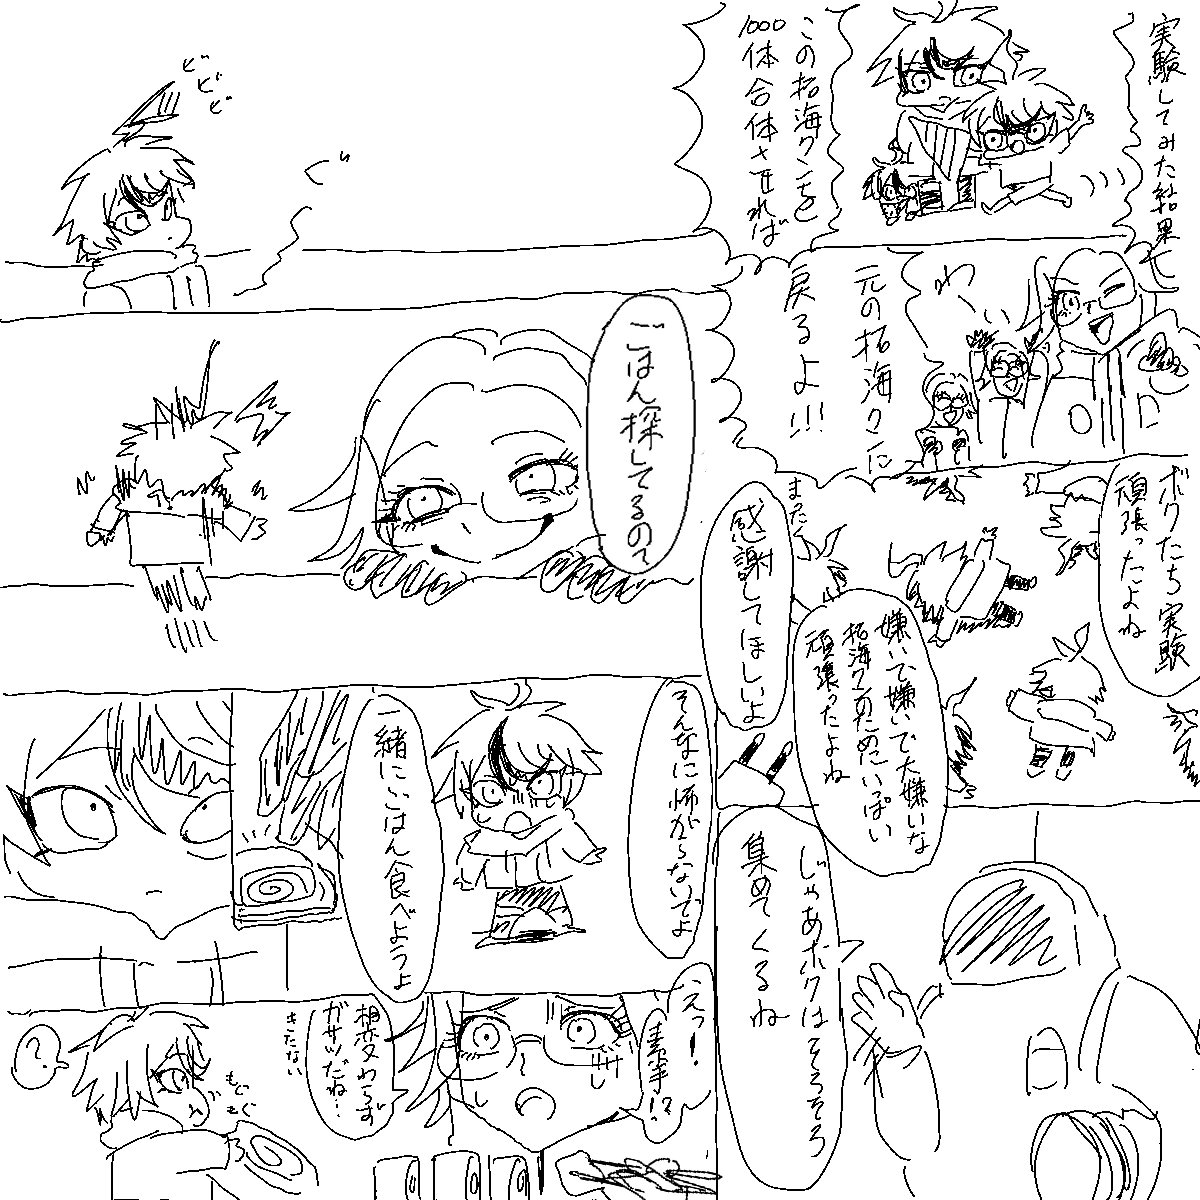 実験してみた結果
この拓海クンを
1000体合体させれば
元の拓海クンに
戻るよ!!!
わ〜
ボクたち実験
頑張ったよね
また
感謝してほしいよ
嫌いで嫌いで大嫌いな
拓海クンのためにいっぱい
頑張ったよね
じゃあボクはそろそろ
集めてくるね
ピピピ
ぐ
ごはん探してるの?
そんなに怖がらないでよ
一緒にごはん食べようよ
えっ!
素手!?
相変わらず
ガサツだね…
きたない
もぐ
もぐ
?